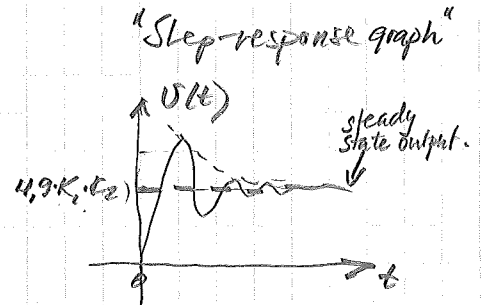 "Step-response graph"
U(t)
steady
state output.
4,9·K₁·K₂)
0
t